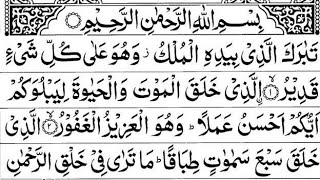 بِسْمِ اللّٰهِ الرَّحْمٰنِ الرَّحِيْمِ
تَبٰرَكَ الَّذِىْ بِيَدِهِ الْمُلْكُ ز وَهُوَ عَلٰى كُلِّ شَىْءٍ
قَدِيْرُ ۨ ۝۱ الَّذِىْ خَلَقَ الْمَوْتَ وَالْحَيٰوةَ لِيَبْلُوَكُمْ
اَيُّكُمْ اَحْسَنُ عَمَلًا ؕ وَهُوَ الْعَزِيْزُ الْغَفُوْرُ ۝۲ الَّذِىْ
خَلَقَ سَبْعَ سَمٰوٰتٍ طِبَاقًا ؕ مَا تَرٰى فِىْ خَلْقِ الرَّحْمٰنِ